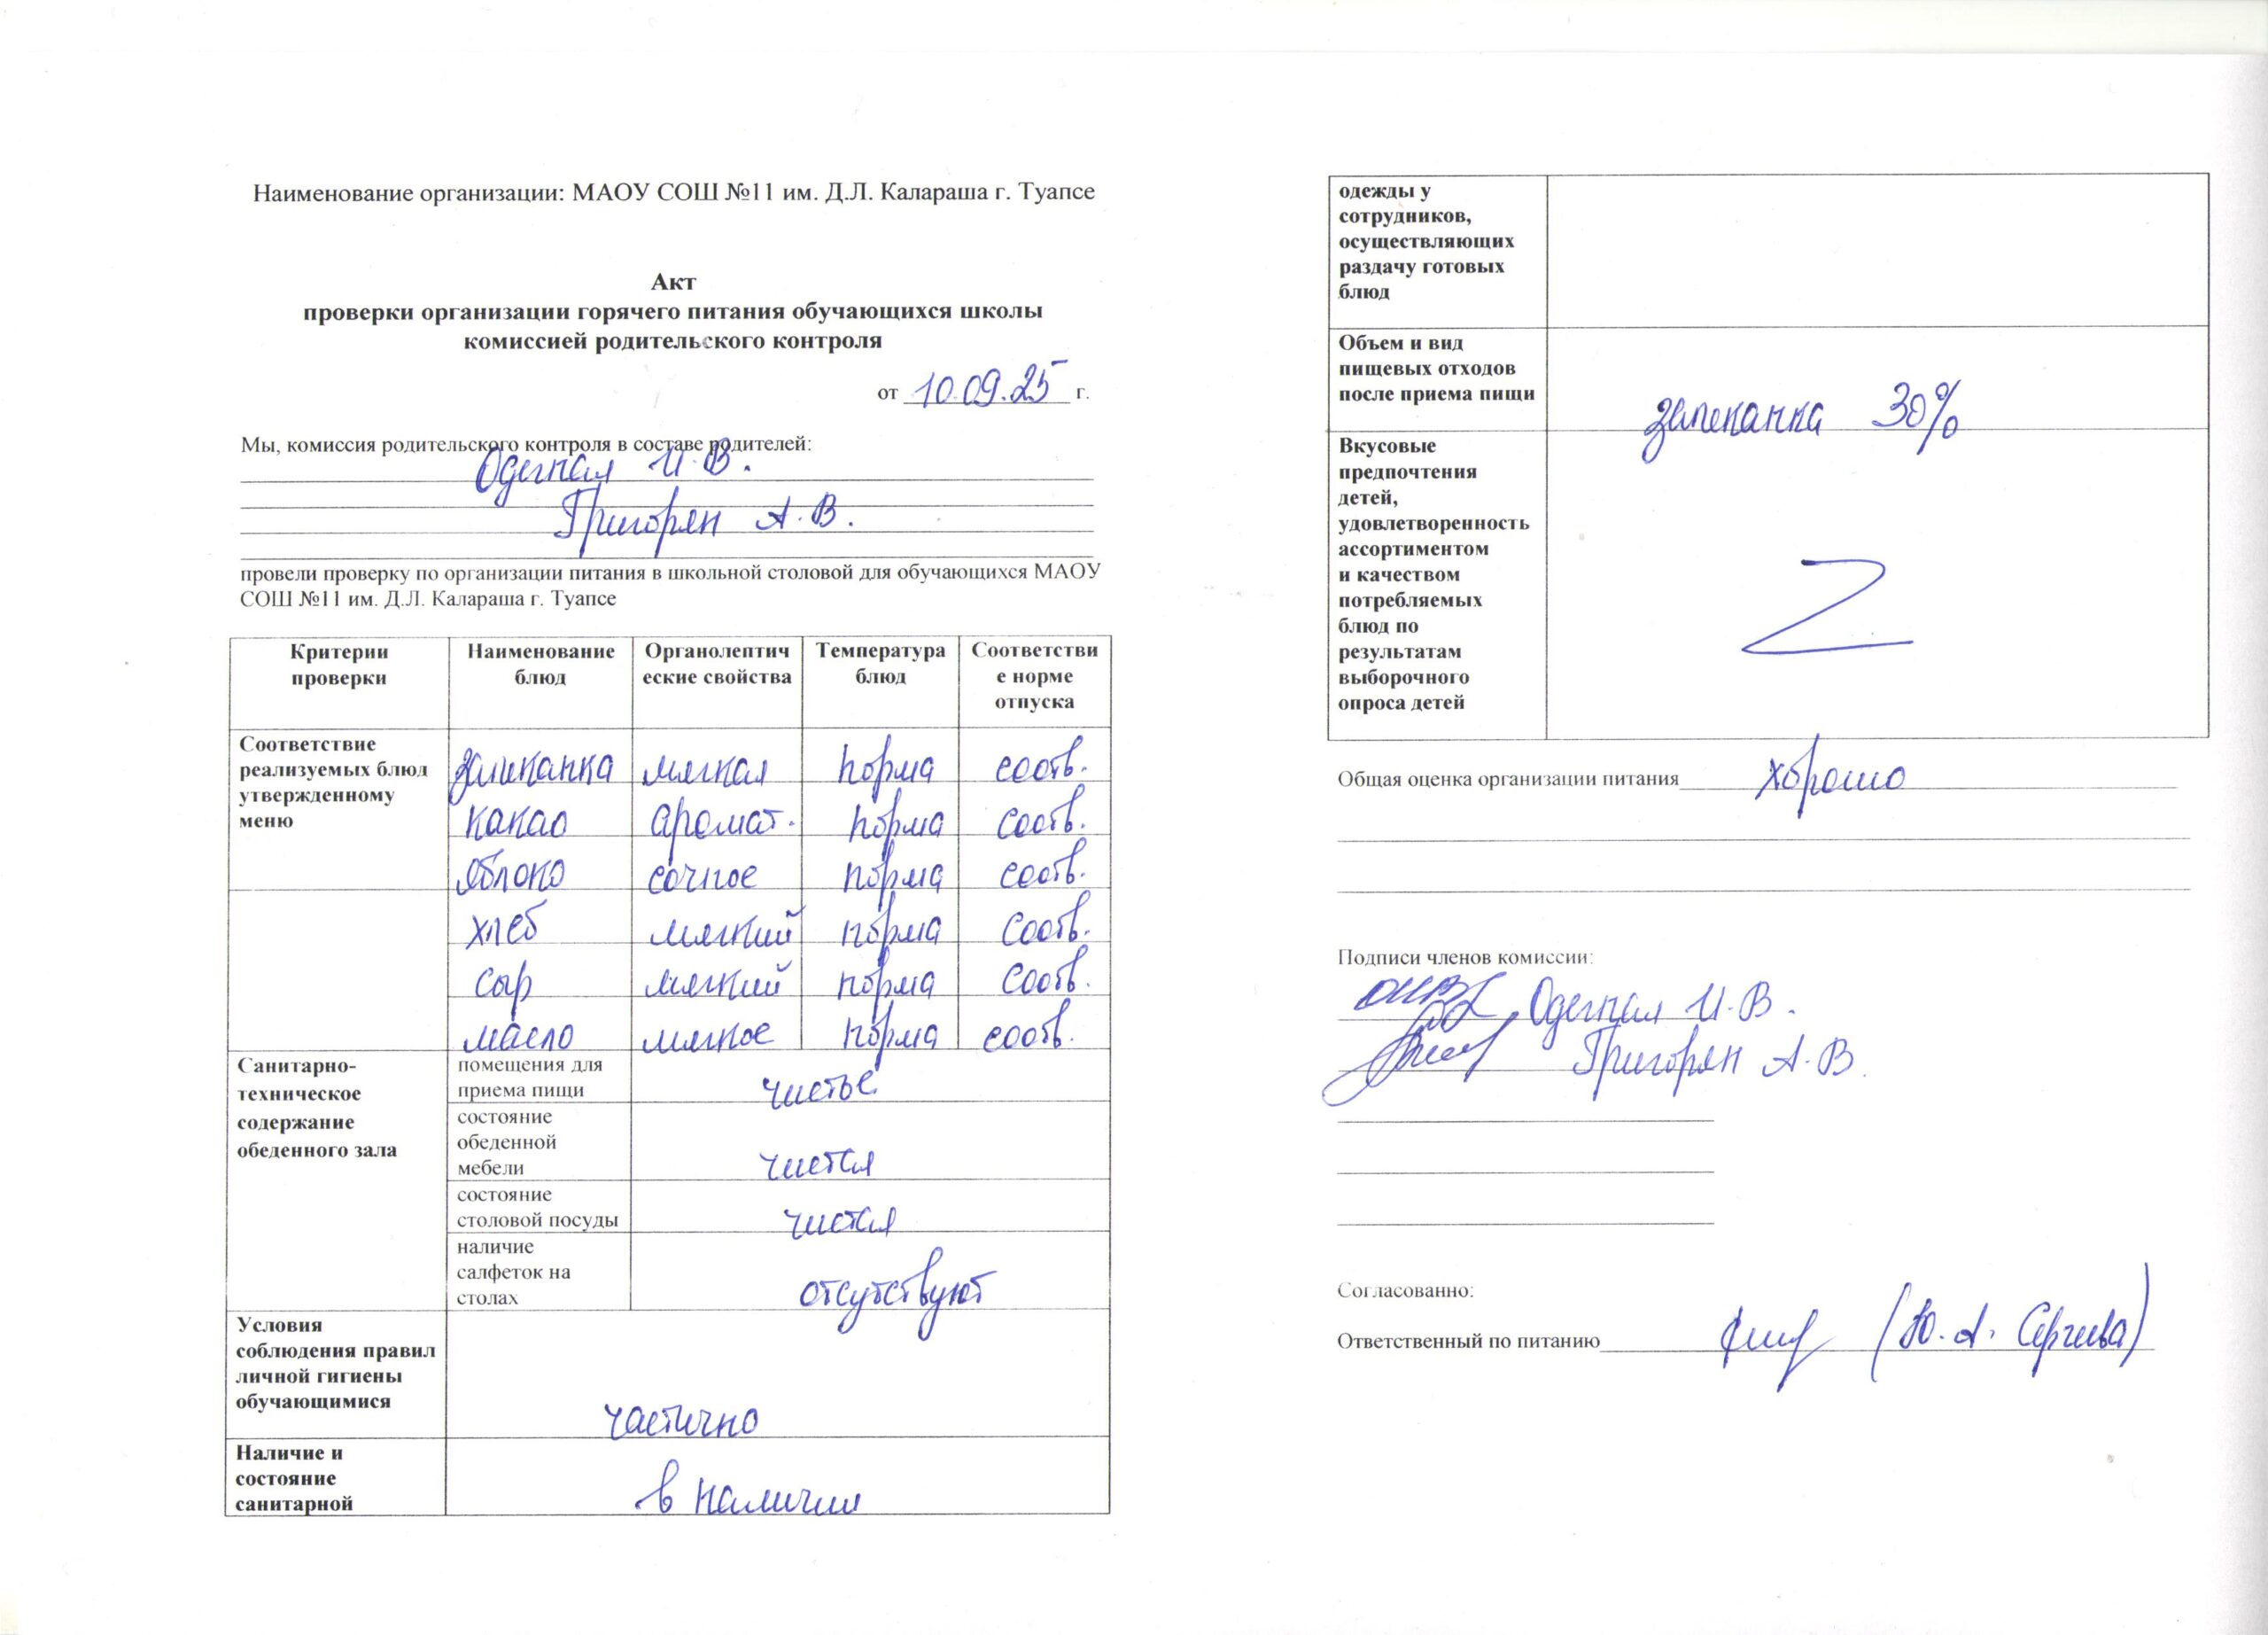 Наименование организации: МАОУ СОШ №11 им. Д.Л. Калараша г. Туапсе
Акт
проверки организации горячего питания обучающихся школы
комиссией родительского контроля
от 10.09.25 г.
Мы, комиссия родительского контроля в составе родителей:
И.В.
Григорян А.В.
провели проверку по организации питания в школьной столовой для обучающихся МАОУ
СОШ №11 им. Д.Л. Калараша г. Туапсе
Критерии проверки Наименование блюд Органолептические свойства Температура блюд Соответствие норме отпуска
Соответствие
реализуемых блюд
утвержденному
меню
запеканка мягкая норма соотв.
какао аромат. норма соотв.
яблоко сочное норма соотв.
хлеб мягкий норма соотв.
сыр мягкий норма соотв.
масло мягкое норма соотв.
Санитарно-
техническое
содержание
обеденного зала
помещения для
приема пищи
чистые
состояние
обеденной
мебели
чистая
состояние
столовой посуды
чистая
наличие
салфеток на
столах
отсутствуют
Условия
соблюдения правил
личной гигиены
обучающимися
частично
Наличие и
состояние
санитарной
в наличии
одежды у
сотрудников,
осуществляющих
раздачу готовых
блюд
Объем и вид
пищевых отходов
после приема пищи
запеканка 30%
Вкусовые
предпочтения
детей,
удовлетворенность
ассортиментом
и качеством
потребляемых
блюд по
результатам
выборочного
опроса детей
Общая оценка организации питания хорошо
Подписи членов комиссии:
И.В.
Григорян А.В.
Согласованно:
Ответственный по питанию (Ю.А. Сергеева)